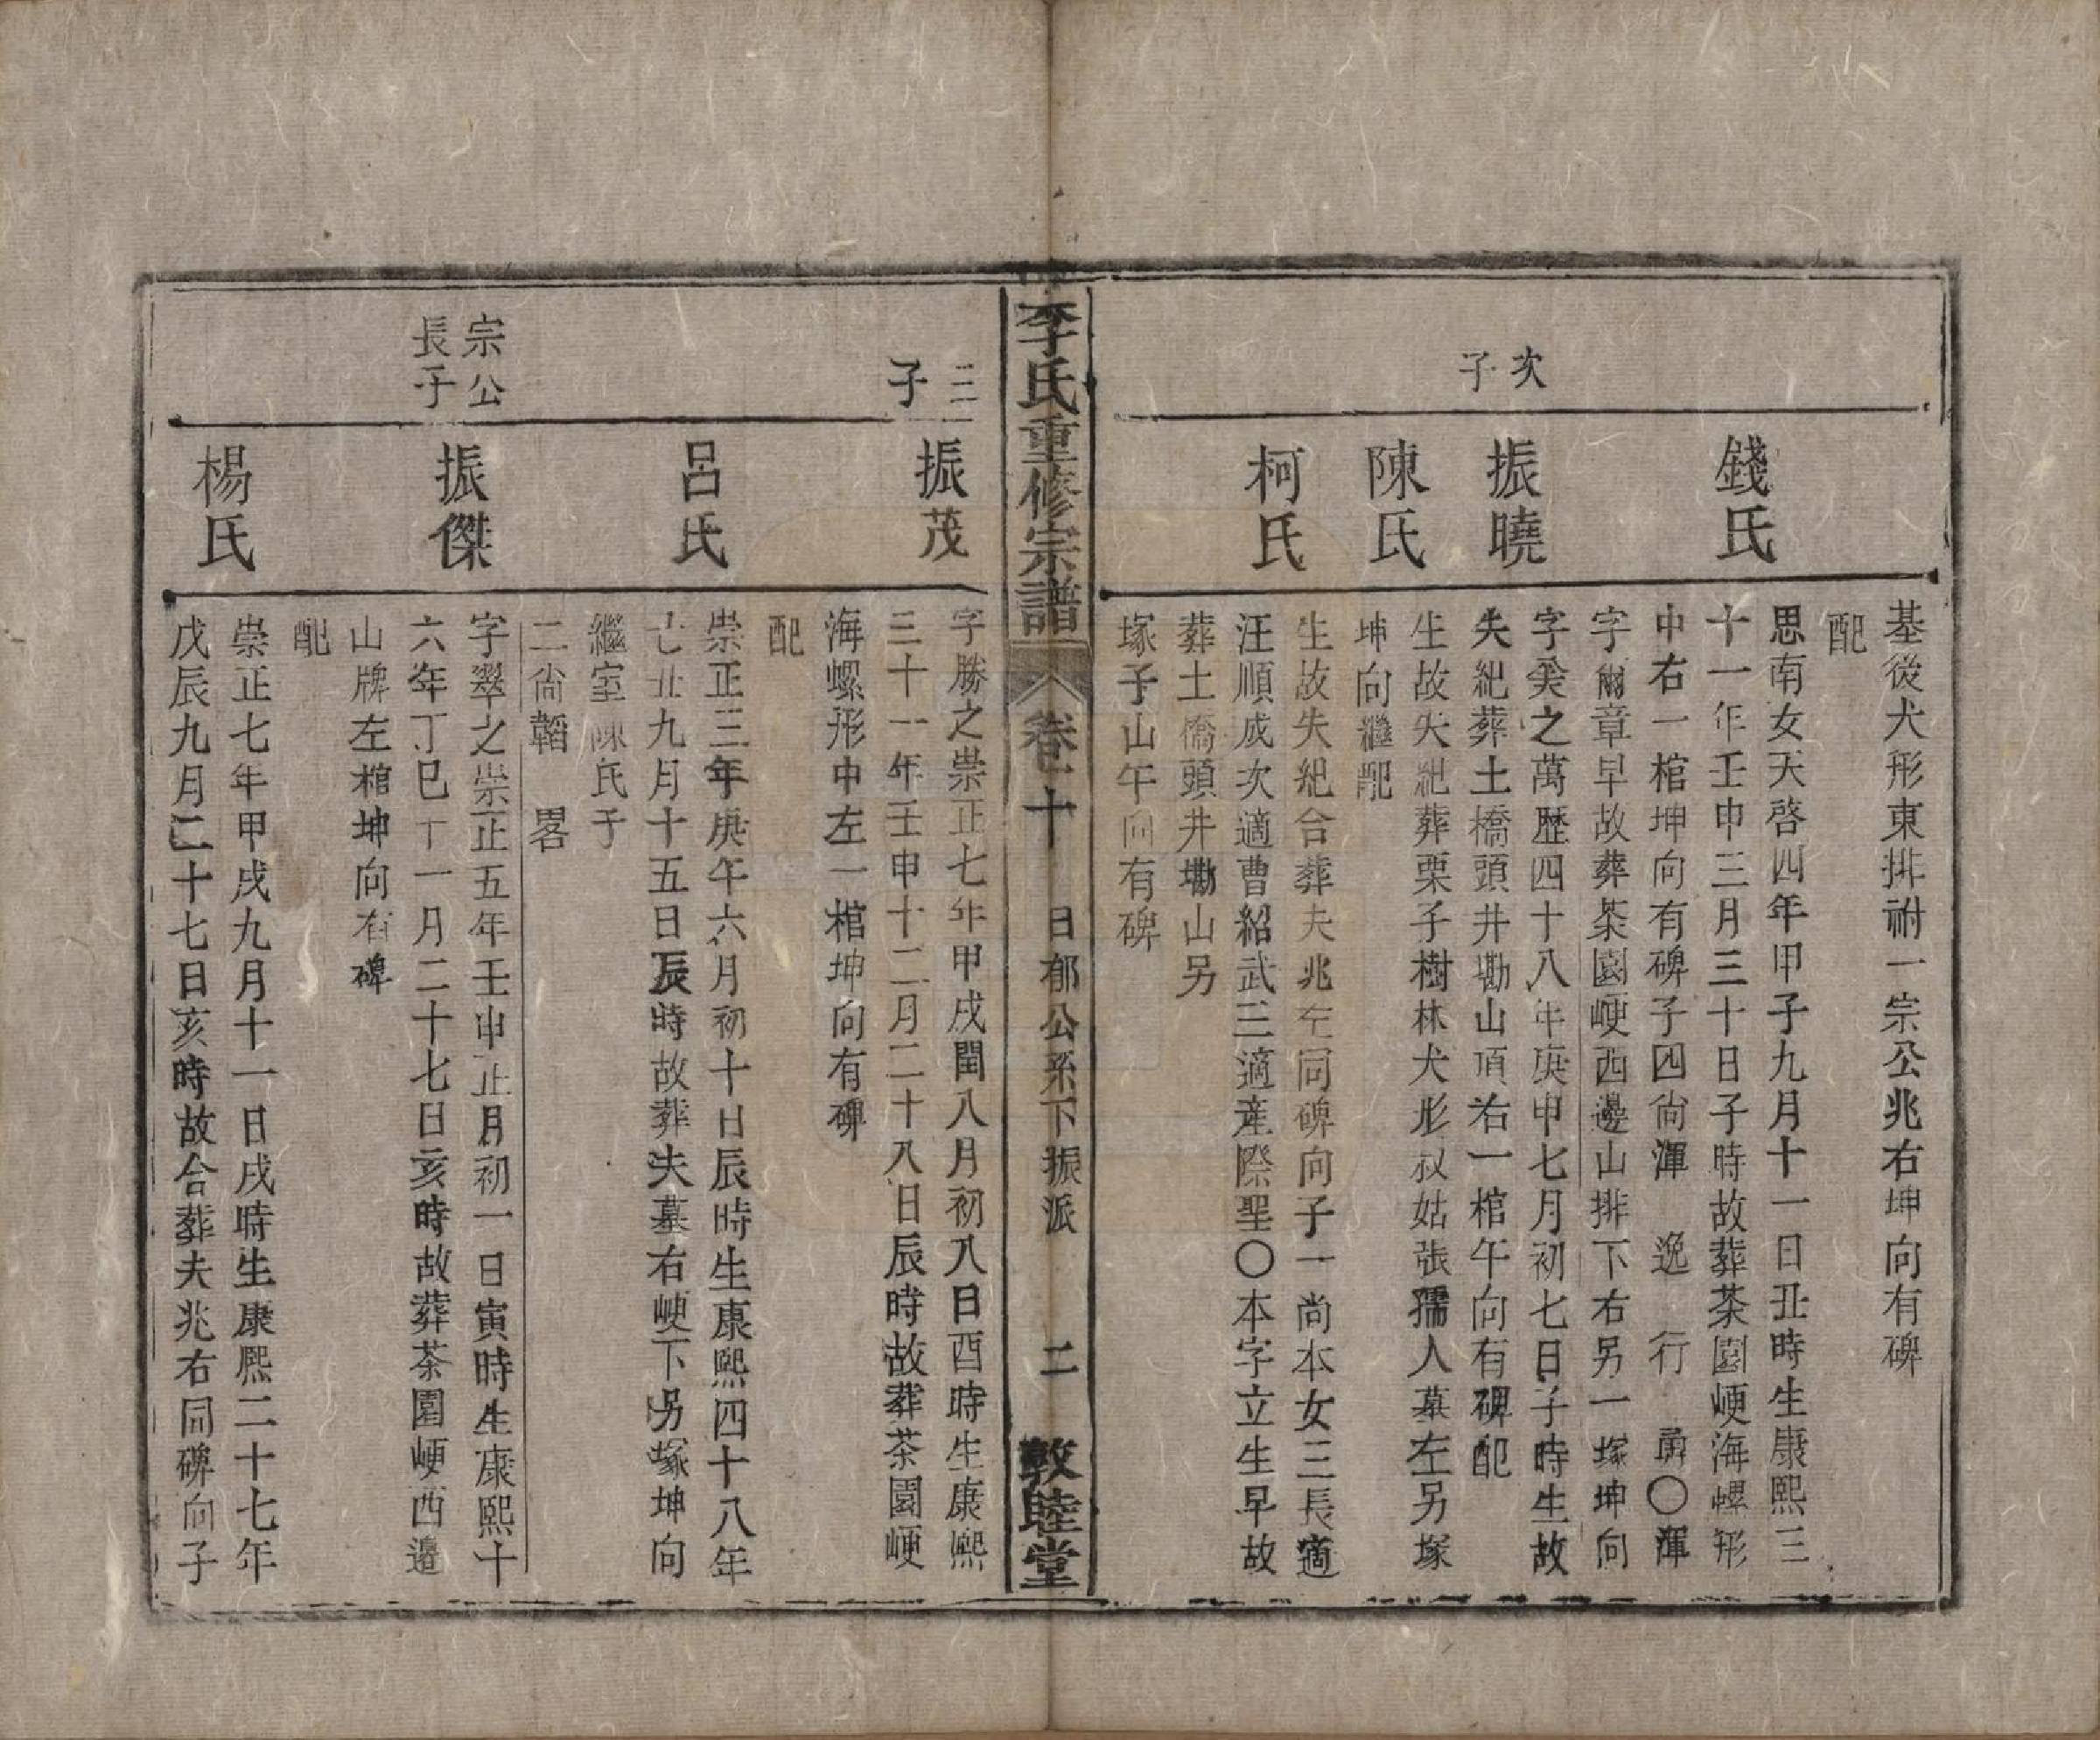 基後犬形東排祔一宗公兆右坤向有碑
配
錢氏
思南女天啓四年甲子九月十一日丑時生康熙三
十一年壬申三月三十日子時故葬茶園峺海螺形
中右一棺坤向有碑子四尙渾 逸 行 勇〇渾
字爾章早故葬茶園峺西邊山排下右另一塚坤向
次
子
振曉
字癸之萬歷四十八年庚申七月初七日子時生故
失紀葬土橋頭井磡山頂右一棺午向有碑配
陳氏
生故失紀葬栗子樹林犬形叔姑張孺人墓左另塚
坤向繼配
柯氏
生故失紀合葬夫兆左同碑向子一尚本女三長適
汪順成次適曹紹武三適産際聖〇本字立生早故
葬土橋頭井磡山另
塚子山午向有碑
李氏重修宗譜 卷十 日郁公系下振派 二 敦睦堂
三
子
振茂
字勝之崇正七年甲戌閏八月初八日酉時生康熙
三十一年壬申十二月二十八日辰時故葬茶園峺
海螺形中左一棺坤向有碑
配
呂氏
崇正三年庚午六月初十日辰時生康熙四十八年
己丑九月十五日辰時故葬夫墓右峺下另塚坤向
繼室陳氏子
二尙韜 畧
宗公
長子
振傑
字翠之崇正五年壬申正月初一日寅時生康熙十
六年丁巳十一月二十七日亥時故葬茶園峺西邊
山牌左棺坤向有碑
配
楊氏
崇正七年甲戌九月十一日戌時生康熙二十七年
戊辰九月二十七日亥時故合葬夫兆右同碑向子